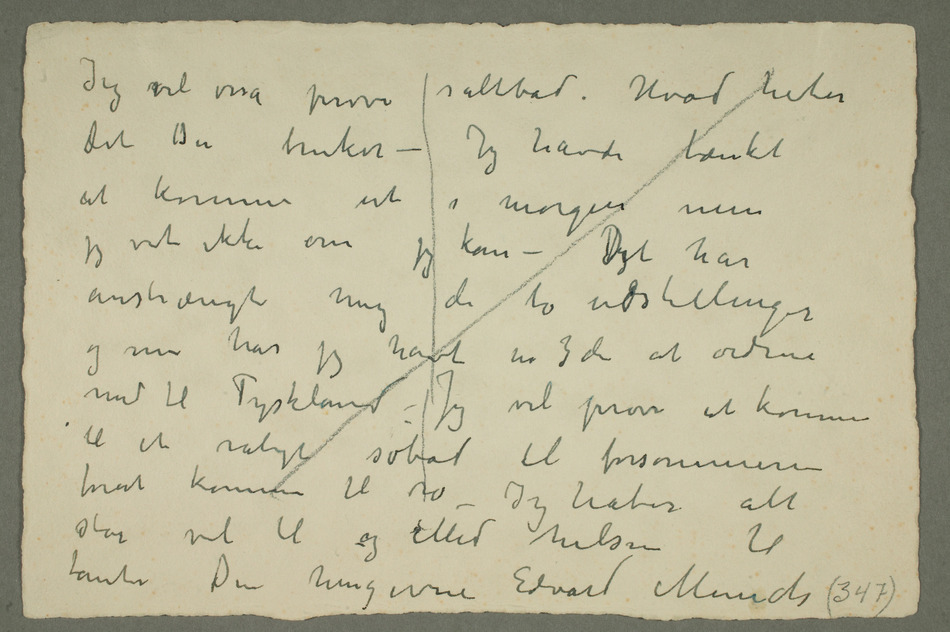 Jeg vil osså prøve saltbad. Hvad heter
det Du bruker – Jeg havde tænkt
at komme ut i morgen men
jeg vet ikke om jeg kan – Det har
anstrængt mig de to udstillinger
og nu har jeg havt en 3de at ordne
ned til Tyskland – Jeg vil prøve at komme
til et roligt søbad til forsommeren
forat komme til ro – Jeg håber alt
står vel til og med hilsen til
tante Din hengivne Edvard Munch (347)